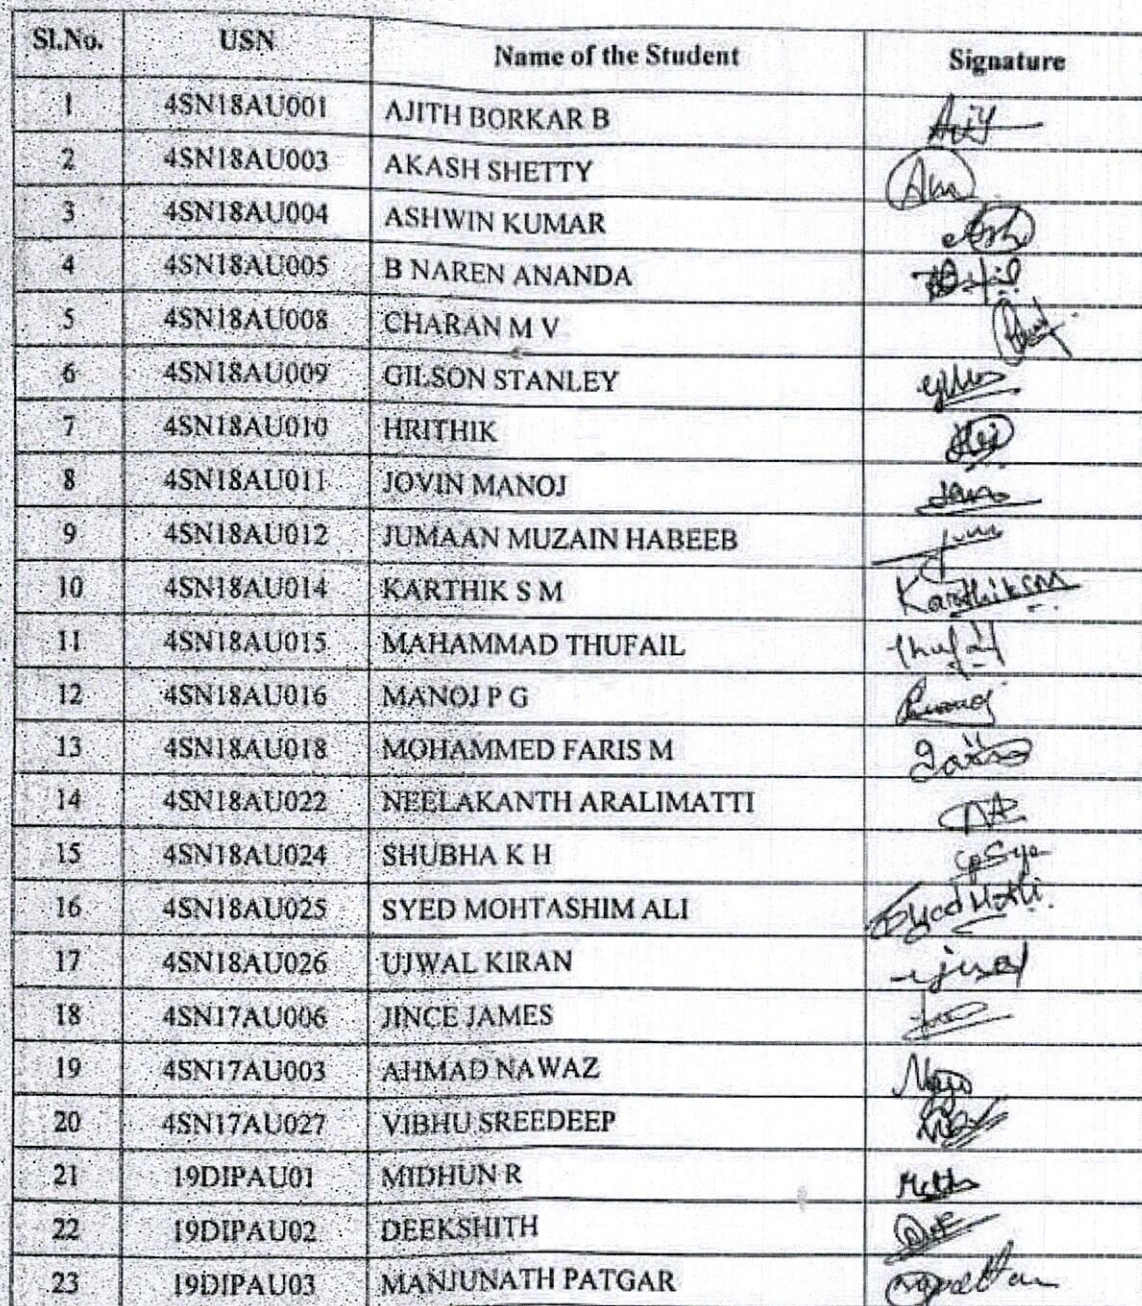 Sl.No. USN Name of the Student Signature
1 4SN18AU001 AJITH BORKAR B
2 4SN18AU003 AKASH SHETTY
3 4SN18AU004 ASHWIN KUMAR
4 4SN18AU005 B NAREN ANANDA
5 4SN18AU008 CHARAN M V
6 4SN18AU009 GILSON STANLEY
7 4SN18AU010 HRITHIK
8 4SN18AU011 JOVIN MANOJ
9 4SN18AU012 JUMAAN MUZAIN HABEEB
10 4SN18AU014 KARTHIK S M Karthik SM
11 4SN18AU015 MAHAMMAD THUFAIL Thufail
12 4SN18AU016 MANOJ P G
13 4SN18AU018 MOHAMMED FARIS M
14 4SN18AU022 NEELAKANTH ARALIMATTI
15 4SN18AU024 SHUBHA K H
16 4SN18AU025 SYED MOHTASHIM ALI
17 4SN18AU026 UJWAL KIRAN
18 4SN17AU006 JINCE JAMES
19 4SN17AU003 AHMAD NAWAZ
20 4SN17AU027 VIBHU SREEDEEP
21 19DIPAU01 MIDHUN R
22 19DIPAU02 DEEKSHITH
23 19DIPAU03 MANJUNATH PATGAR